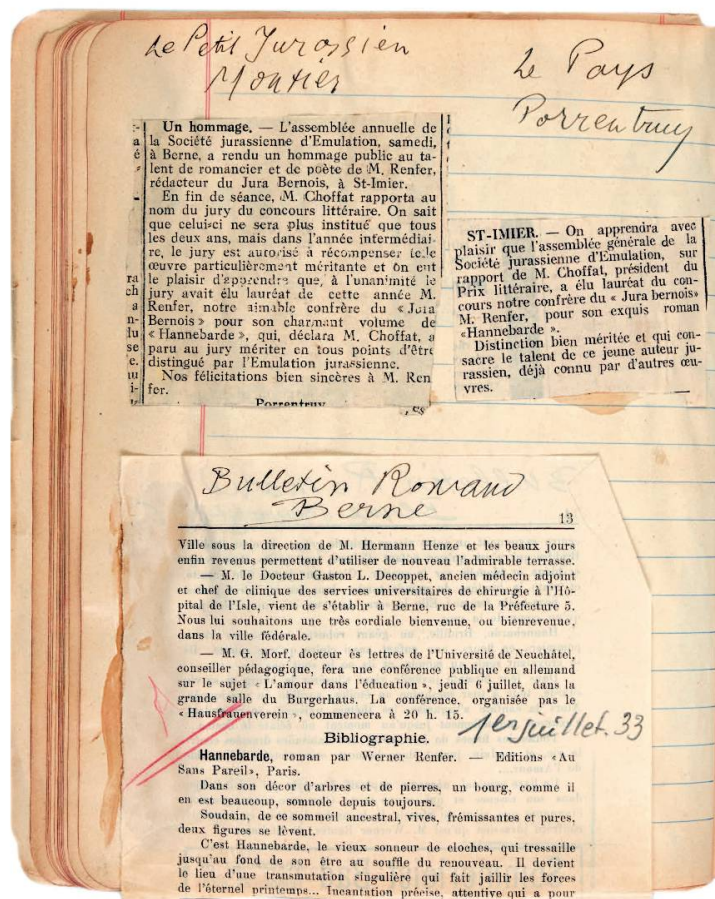 Le Petit Jurassien
Moutier
Un hommage. — L'assemblée annuelle de
la Société jurassienne d'Emulation, samedi,
à Berne, a rendu un hommage public au ta-
lent de romancier et de poète de M. Renfer,
rédacteur du Jura Bernois, à St-Imier.
En fin de séance, M. Choffat rapporta au
nom du jury du concours littéraire. On sait
que celui-ci ne sera plus institué que tous
les deux ans, mais dans l'année intermédiai-
re, le jury est autorisé à récompenser telle
œuvre particulièrement méritante et on eut
le plaisir d'apprendre que, à l'unanimité le
jury avait élu lauréat de cette année M.
Renfer, notre aimable confrère du « Jura
Bernois » pour son charmant volume de
« Hannebarde », qui, déclara M. Choffat, a
paru au jury mériter en tous points d'être
distingué par l'Emulation jurassienne.
Nos félicitations bien sincères à M. Ren
fer.
Porrentruy
Le Pays
Porrentruy
ST-IMIER. — On apprendra avec
plaisir que l'assemblée générale de la
Société jurassienne d'Emulation, sur
rapport de M. Choffat, président du
Prix littéraire, a élu lauréat du con-
cours notre confrère du « Jura bernois »
M. Renfer, pour son exquis roman
«Hannebarde ».
Distinction bien méritée et qui con-
sacre le talent de ce jeune auteur ju-
rassien, déjà connu par d'autres œu-
vres.
Bulletin Romand
Berne
13
Ville sous la direction de M. Hermann Henze et les beaux jours
enfin revenus permettent d'utiliser de nouveau l'admirable terrasse.
— M. le Docteur Gaston L. Decoppet, ancien médecin adjoint
et chef de clinique des services universitaires de chirurgie à l'Hô-
pital de l'Isle, vient de s'établir à Berne, rue de la Préfecture 5.
Nous lui souhaitons une très cordiale bienvenue, ou bienrevenue,
dans la ville fédérale.
— M. G. Morf, docteur ès lettres de l'Université de Neuchâtel,
conseiller pédagogique, fera une conférence publique en allemand
sur le sujet « L'amour dans l'éducation », jeudi 6 juillet, dans la
grande salle du Burgerhaus. La conférence, organisée pas le
« Hausfrauenverein », commencera à 20 h. 15.
1er juillet. 33
Bibliographie.
Hannebarde, roman par Werner Renfer. — Editions «Au
Sans Pareil», Paris.
Dans son décor d'arbres et de pierres, un bourg, comme il
en est beaucoup, somnole depuis toujours.
Soudain, de ce sommeil ancestral, vives, frémissantes et pures,
deux figures se lèvent.
C'est Hannebarde, le vieux sonneur de cloches, qui tressaille
jusqu'au fond de son être au souffle du renouveau. Il devient
le lieu d'une transmutation singulière qui fait jaillir les forces
de l'éternel printemps... Incantation précise, attentive qui a pour